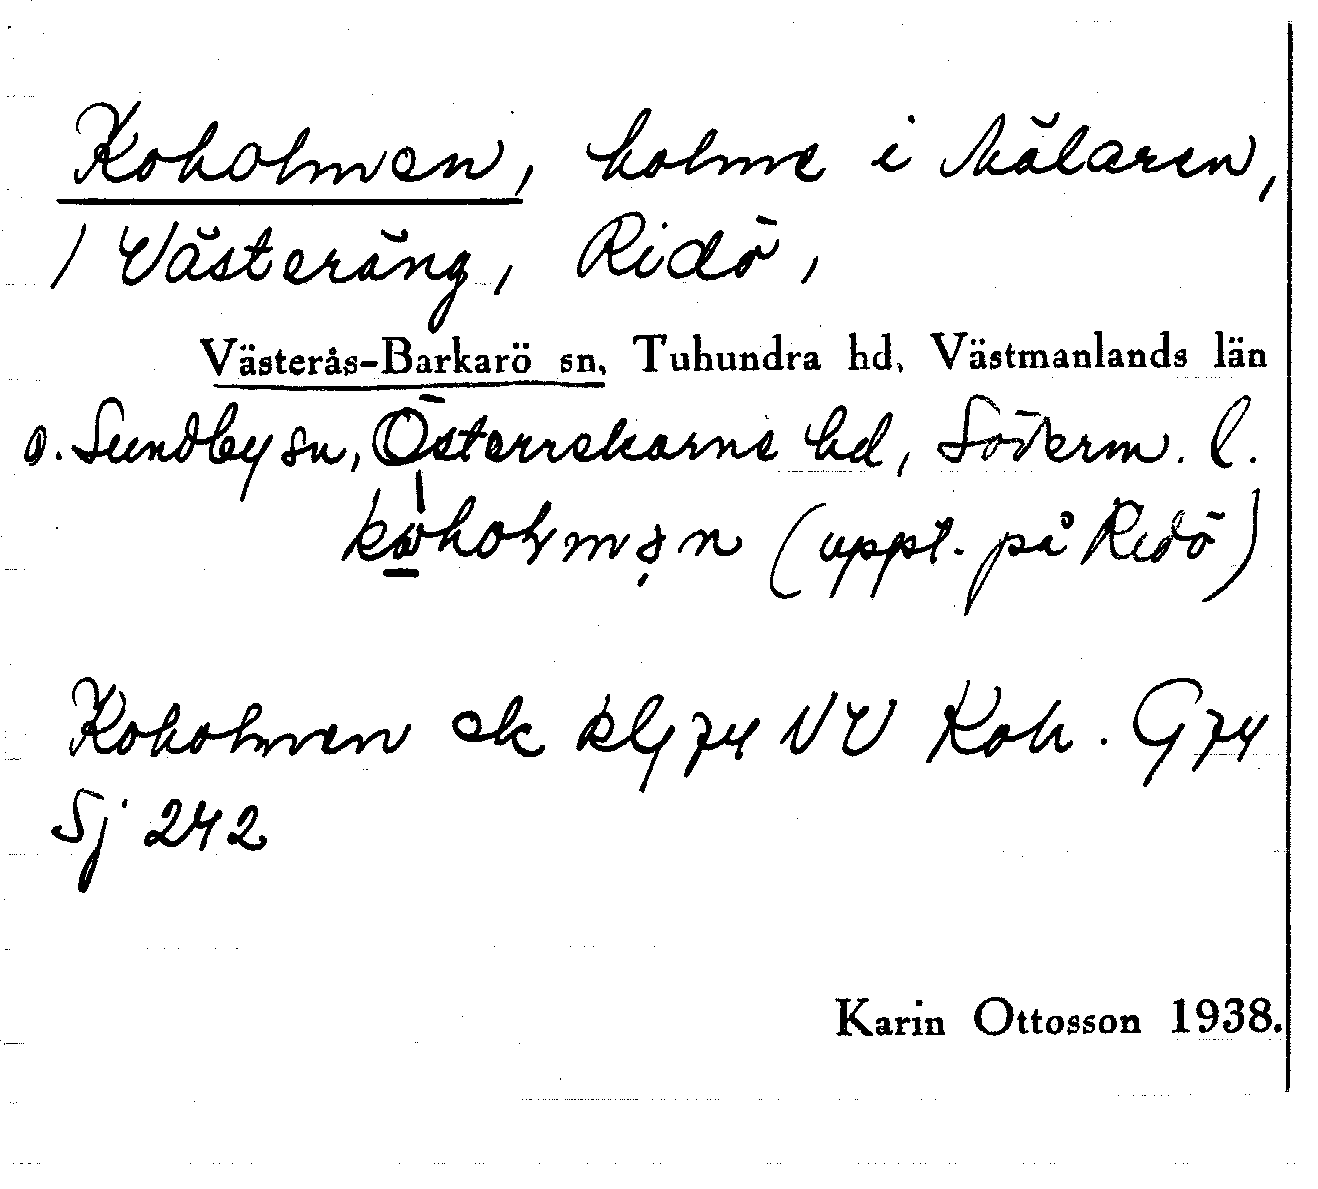 Koholmen, holme i Mälaren,
/ Västeräng, Ridö,
Västerås-Barkarö sn, Tuhundra hd, Västmanlands län
o. Sundby sn, Österrekarne hd, Söderm. l.
(uppt. på Ridö)
Koholmen ek klg 74 NV Koh. G 74
Sj 242
Karin Ottosson 1938.